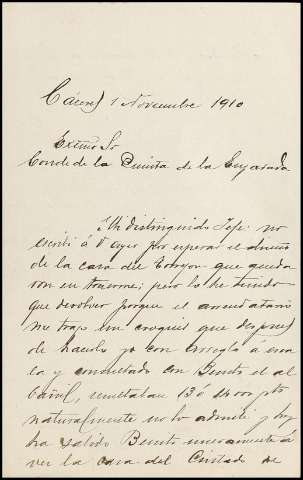 Cáceres 1 Noviembre 1910
Exmo Sr
Conde de la Quinta de la Enjarada
Mi distinguido Jefe: no
escribí á V ayer por esperar el
de la casa del que queda
ron en traerme; pero lo he tenido
que devolver porque el arrendatario
me trajo un croquis que despues
de hacerlo yo con arreglo á esca
la y consultado con Benito el al
bañil, resultaban 13 ó 14000 pts
naturalmente no lo admití y hoy
ha salido Benito nuevamente á
ver la casa del Ciudad